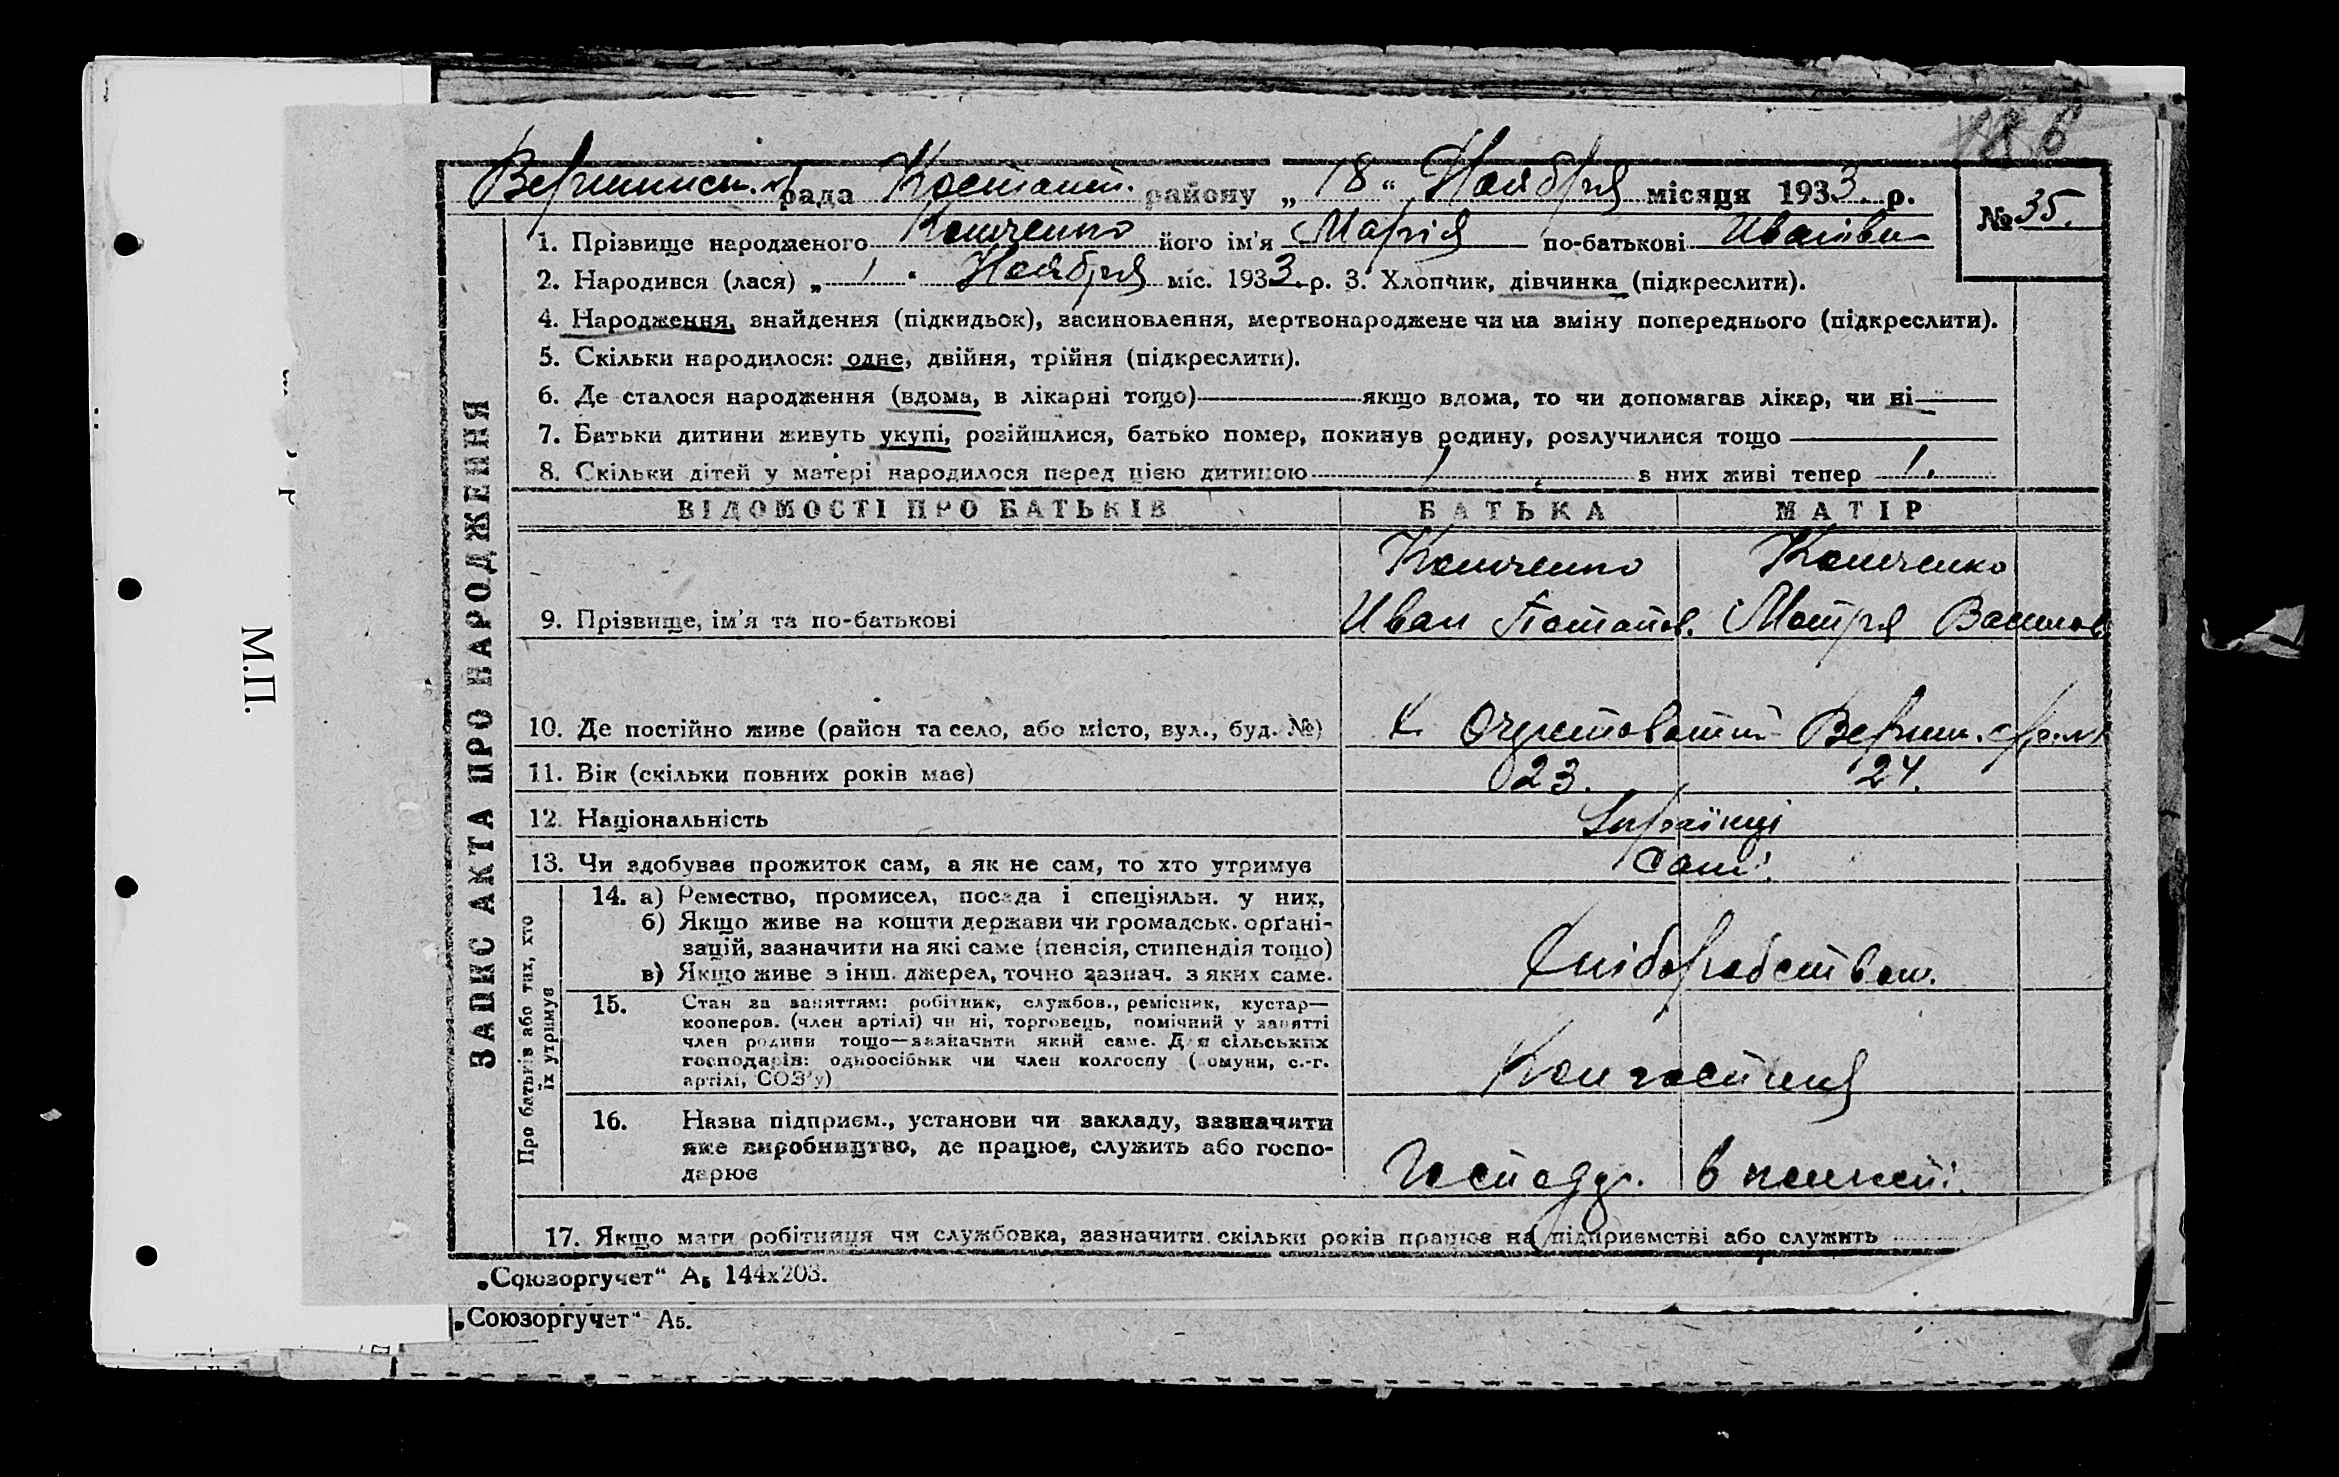 186
рада Костант. району „ 18 “ Ноября місяця 1933 р.
№ 35.
1. Прізвище народженого його ім'я Марія по-батькові Иванівн
2. Народився (лася) „ 1 “ Ноября міс. 1933 р. 3. Хлопчик, дівчинка (підкреслити).
4. Народження, знайдення (підкидьок), засиновлення, мертвонароджене чи на зміну попереднього (підкреслити).
5. Скільки народилося: одне, двійня, трійня (підкреслити).
6. Де сталося народження (вдома, в лікарні тощо) — якщо вдома, то чи допомагав лікар, чи ні —
7. Батьки дитини живуть укупі, розійшлися, батько помер, покинув родину, розлучилися тощо —
8. Скільки дітей у матері народилося перед цією дитиною 1 з них живі тепер 1.
ЗАПИС АКТА ПРО НАРОДЖЕННЯ
ВІДОМОСТІ ПРО БАТЬКІВ БАТЬКА МАТІР
9. Прізвище, ім'я та по-батькові Иван Потапов. Мотря Василов
10. Де постійно живе (район та село, або місто, вул., буд. №) х. Очеретоватий
11. Вік (скільки повних років має) 23. 24.
12. Національність Українці
13. Чи здобуває прожиток сам, а як не сам, то хто утримує Самі
Про батьків або тих, хто їх утримує
14. а) Ремество, промисел, посада і спеціяльн. у них,
б) Якщо живе на кошти держави чи громадськ. орґані-
зацій, зазначити на які саме (пенсія, стипендія тощо)
в) Якщо живе з інш. джерел, точно зазнач. з яких саме.
Хліборобством.
15. Стан за заняттям: робітник, службов., ремісник, кустар—
кооперов. (член артілі) чи ні, торговець, помічний у занятті
член родини тощо—зазначити який саме. Для сільських
господарів: одноосібник чи член колгоспу (комуни, с.-г.
артілі, СОЗ'у)
16. Назва підприєм., установи чи закладу, зазначити
яке виробництво, де працює, служить або госпо-
дарює
Господ. в
17. Якщо мати робітниця чи службовка, зазначити скільки років працює на підприємстві або служить
„Союзоргучет“ А₅ 144х203.
„Союзоргучет“ А₅.
М.П.